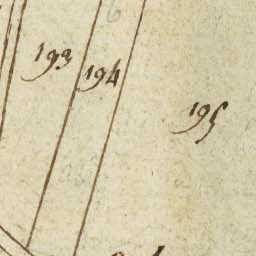 193
194
195